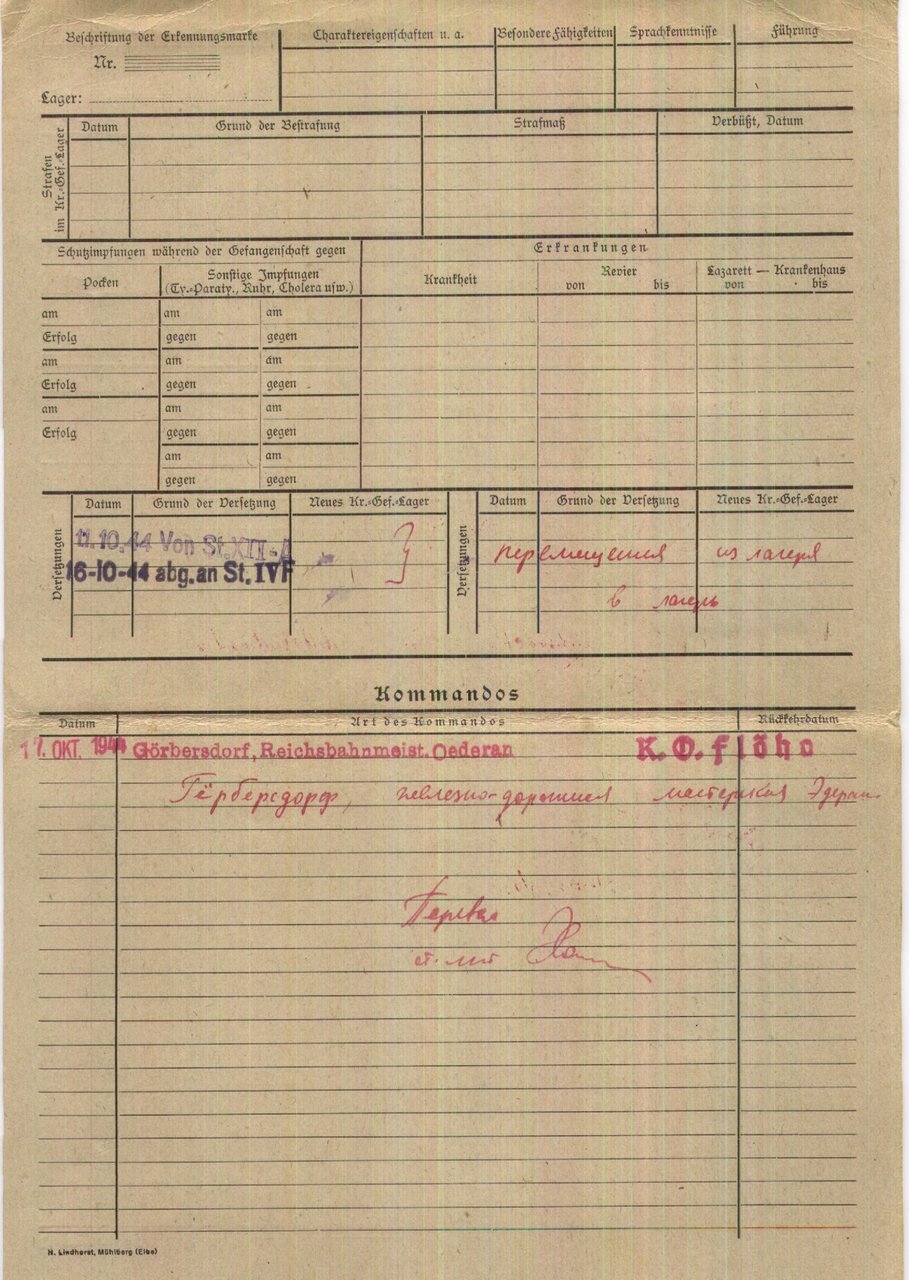 Beschriftung der Erkennungsmarke
Nr.
Lager:
Charaktereigenschaften u. a.
Besondere Fähigkeiten
Sprachkenntnisse
Führung
Strafen im Kr.-Gef.-Lager
Datum
Grund der Bestrafung
Strafmaß
Verbüßt, Datum
Schutzimpfungen während der Gefangenschaft gegen
Erkrankungen
Pocken
Sonstige Impfungen
(Ty.-Paraty., Ruhr, Cholera usw.)
Krankheit
Revier
von bis
Lazarett — Krankenhaus
von bis
am am am
Erfolg gegen gegen
am am am
Erfolg gegen gegen
am am am
Erfolg gegen gegen
am am
gegen gegen
Versetzungen
Datum
Grund der Versetzung
Neues Kr.-Gef.-Lager
11.10.44 Von St. XII-A
16-10-44 abg. an St. IVF
Versetzungen
Datum
Grund der Versetzung
Neues Kr.-Gef.-Lager
перемещения из лагеря
в лагерь
Kommandos
Datum
Art des Kommandos
Rückkehrdatum
17. OKT. 1944 Görbersdorf, Reichsbahnmeist. Oederan K.O. flöha
Гёрберсдорф, железно-дорожная мастерская Эдеран
Перевел
ст. л-т
N. Lindhorst, Mühlberg (Elbe)